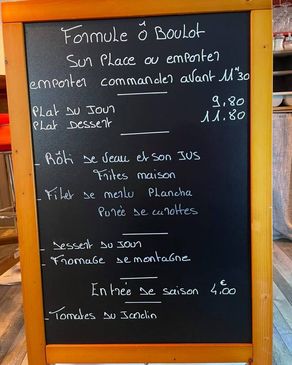 Formule Ô Boulot
Sur Place ou emporter
emporter commander avant 11H30
Plat du Jour 9,80
Plat Dessert 11.80
- Rôti de veau et son JUS
Frites maison
- Filet de merlu Plancha
Purée de carottes
- Dessert du Jour
- Fromage de montagne
Entrée de saison 4,00€
- Tomates du Jardin